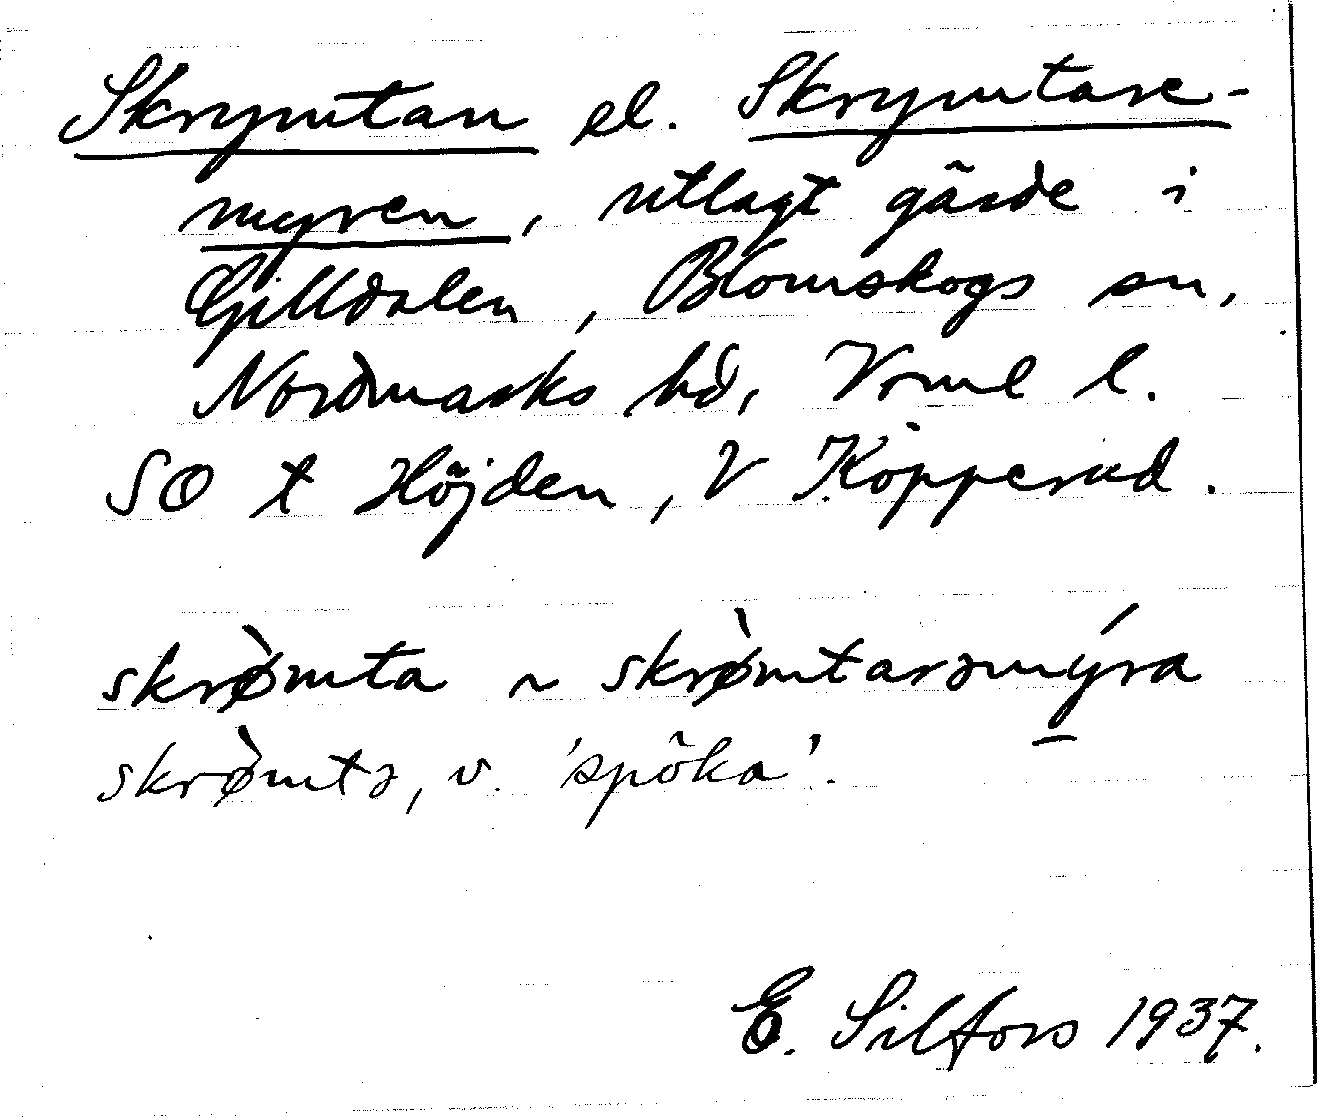 Skrymtan el. Skrymtare-
myren, utlagt gärde i
Gilldalen, Blomskogs sn,
Nordmarks hd, Vrml l.
SO t Höjden, V Köpperud.
skrø̀mta ~ skrø̀mtarəmýra
skrø̀mtə, v. 'spöka'.
E. Silfors 1937.